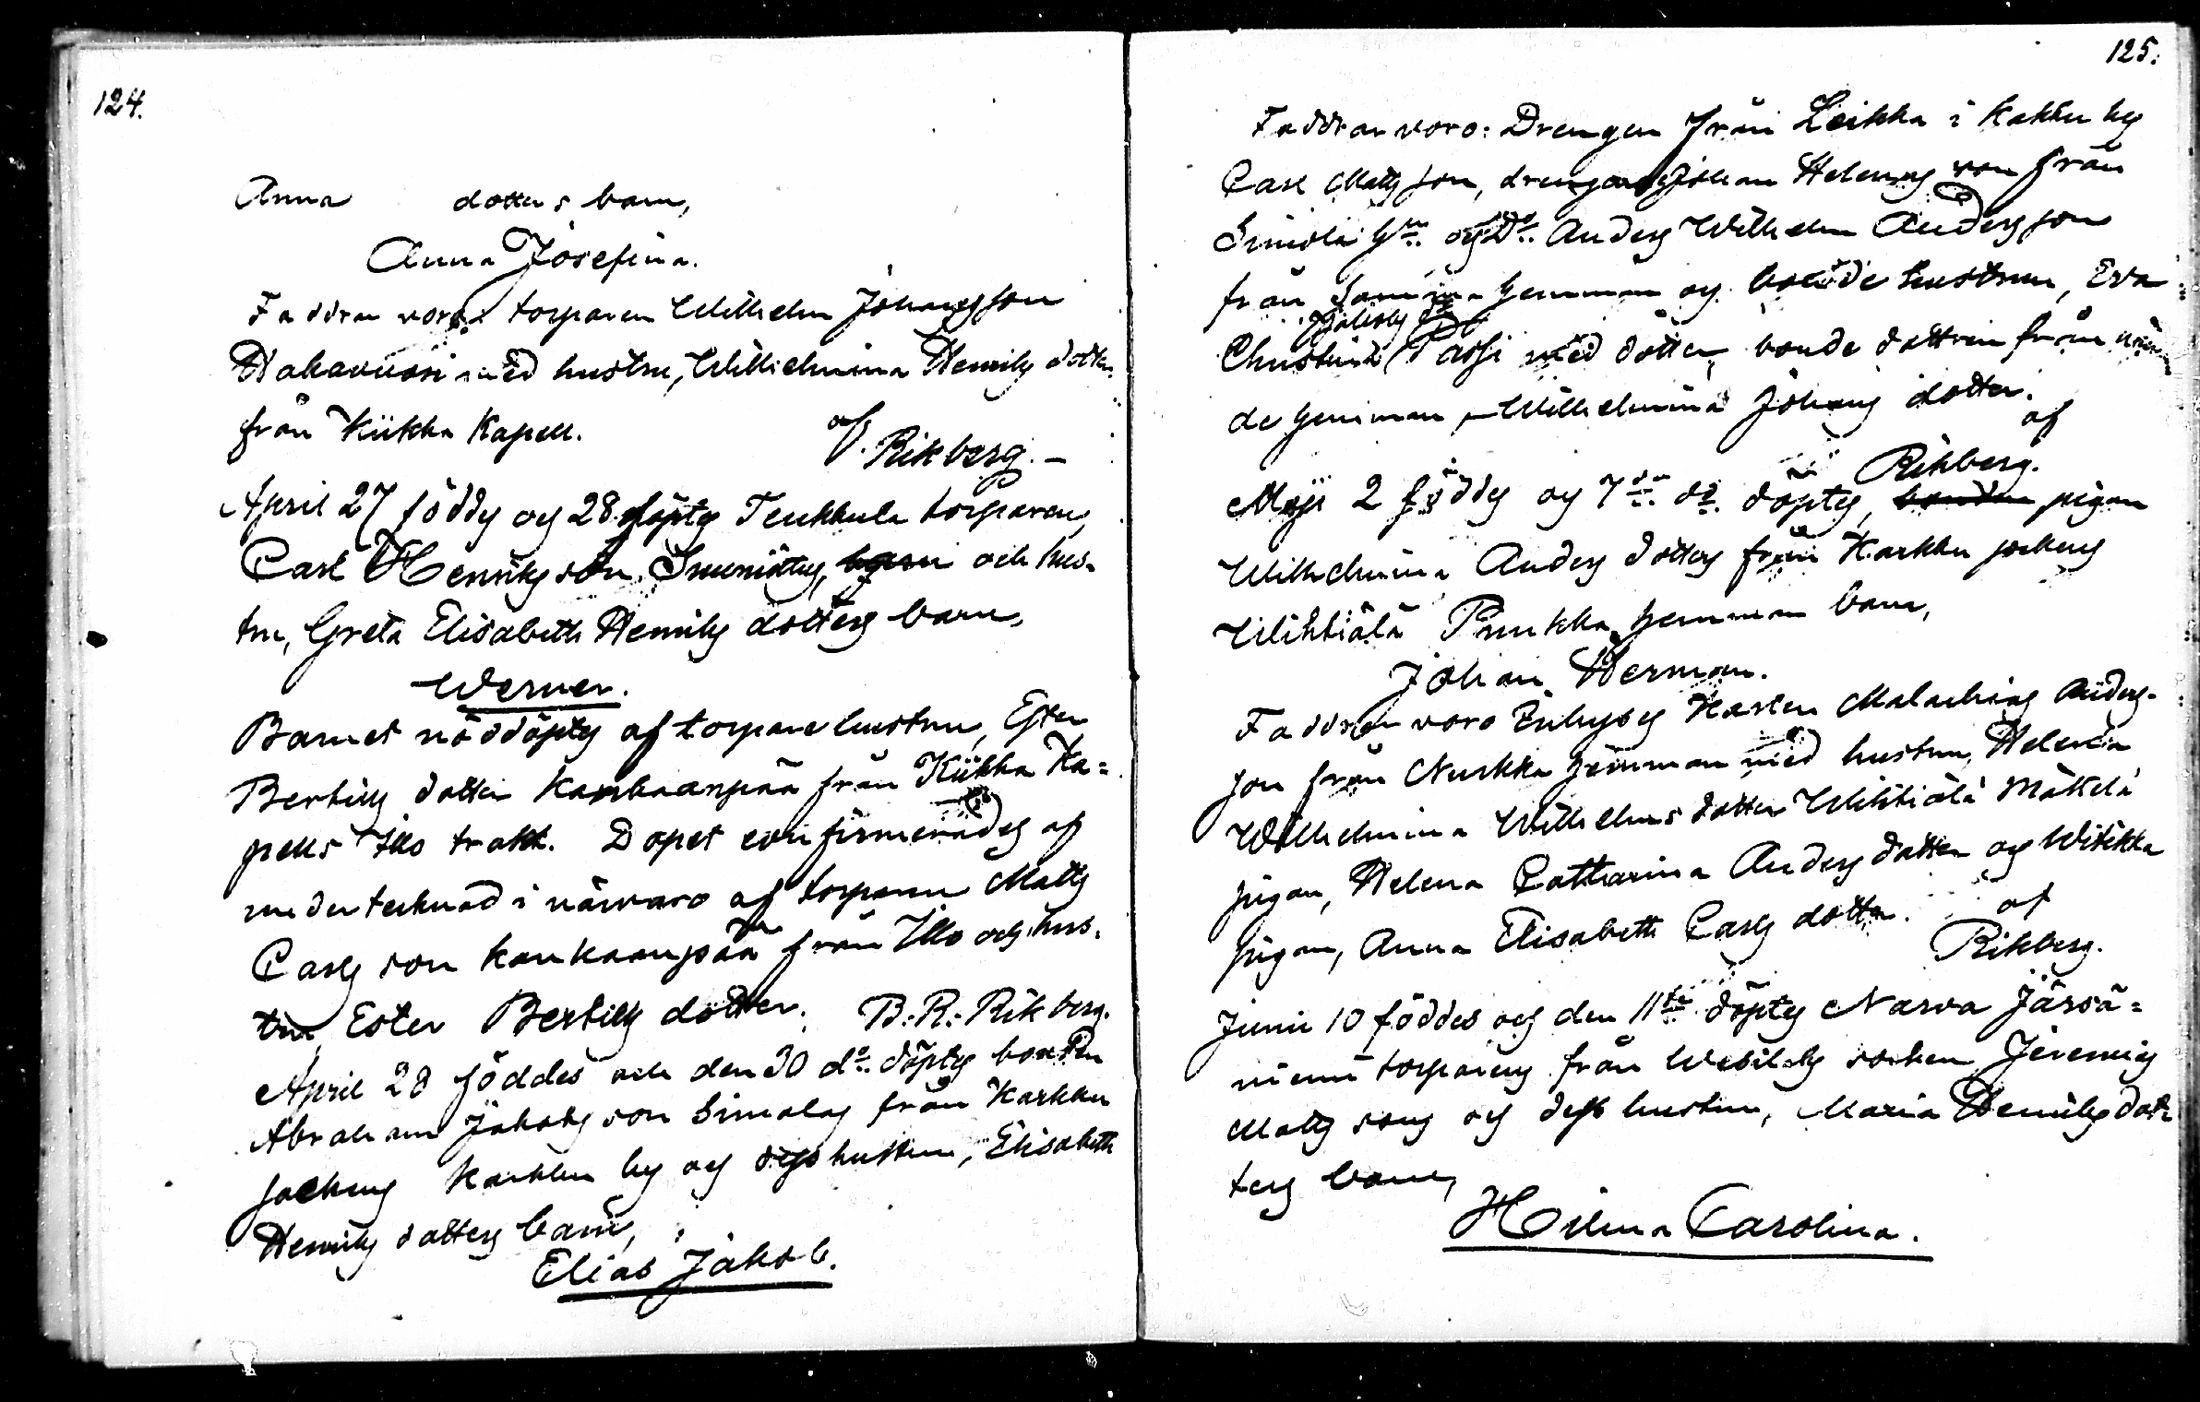 124.
Anna dotters barn,
Anna Josefina.
Faddrar voro: torparen Wilhelm Johansson
Hakavuori med hustru, Wilhelmina Henriks dotter
från Kiikka Kapell.
af. Rikberg.–
April 27 föddes og 28 döptes Teukkula torparen,
Carl Henriks son barn och hus-
tru, Greta Elisabeth Henriks dotters barn,
Werner.
Barnet nöddöptes af torpare hustru, Ester
Bertils dotter Kankaanpää från Kiikka Ka=
pells Illo trakt. Dopet confirmerades af
undertecknad i närvaro af torparen Matts
Carls son Kankaanpää från Illo och hus-
tru Ester Bertils dotter. B. R. Rikberg.
April 28 föddes och den 30 do. döptes bonden
Abraham Jakobs son Simolas från Karkku
sockens Karkku by og dess hustru, Elisabeth
Henriks dotters barn,
Elias Jakob.
125.
Faddrar voro: Drengen från Leikka i Kakku by
Carl Mattsson, drengen Johan Helenas son från
Simola hn. og Do. Anders Wilhelm Andersson
från samma hemman og bonde hustrun, Eva
Jakobs dr
Christina Passi med dotter, bonde dottren från nämn
de hemman, Wilhelmina Johans dotter.
af
Rikberg.
Maji 2 föddes og 7de do. döptes, bonden pigan
Wilhelmina Anders dotters från Karkku sockens
Wihtiälä Punkka hemman barn,
Johan Herman.
Faddrar voro Malachias Anders-
son från Nuskka hemman med hustru, Helena
Wilhelmina Wilhelms dotter Wihtiälä Mäkelä
pigan, Helena Catharina Anders dotter og Witikka
pigan, Anna Elisabeth Carls dotter.
af
Rikberg.
Junii 10 föddes og den 11te döptes Narva Järvä=
niemi torparens från Wesilaks socken Jeremias
Matts sons og dess hustru, Maria Henriks dot-
ters barn,
Hilma Carolina.